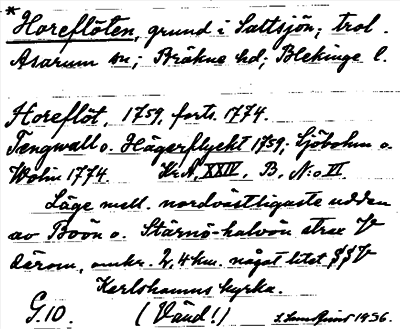 *Horeflöten, grund i Saltsjön; trol.
Asarum sn; Bräkne hd; Blekinge l.
Horeflöt, 1759, forts. 1774.
Tengwall o. Hägerflyckt 1759; Sjöbohm o.
Wolin 1774 KrA, XXIV, B, N:o VI.
Läge mell. nordvästligaste udden
av Boön o. Stärnö-halvön strax V
därom, omkr. 2,4 km. något litet SSV
Karlshamns kyrka.
G.10. (Vänd!) 1936.